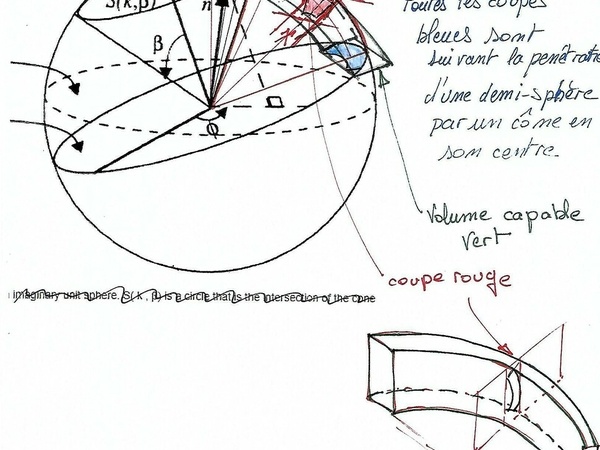 S(k,β)
n
β
φ
toutes les coupes
bleues sont
suivant la pénétration
d'une demi-sphère
par un cône en
son centre.
volume capable
vert
coupe rouge
imaginary unit sphere. S( k , β) is a circle that is the intersection of the cone